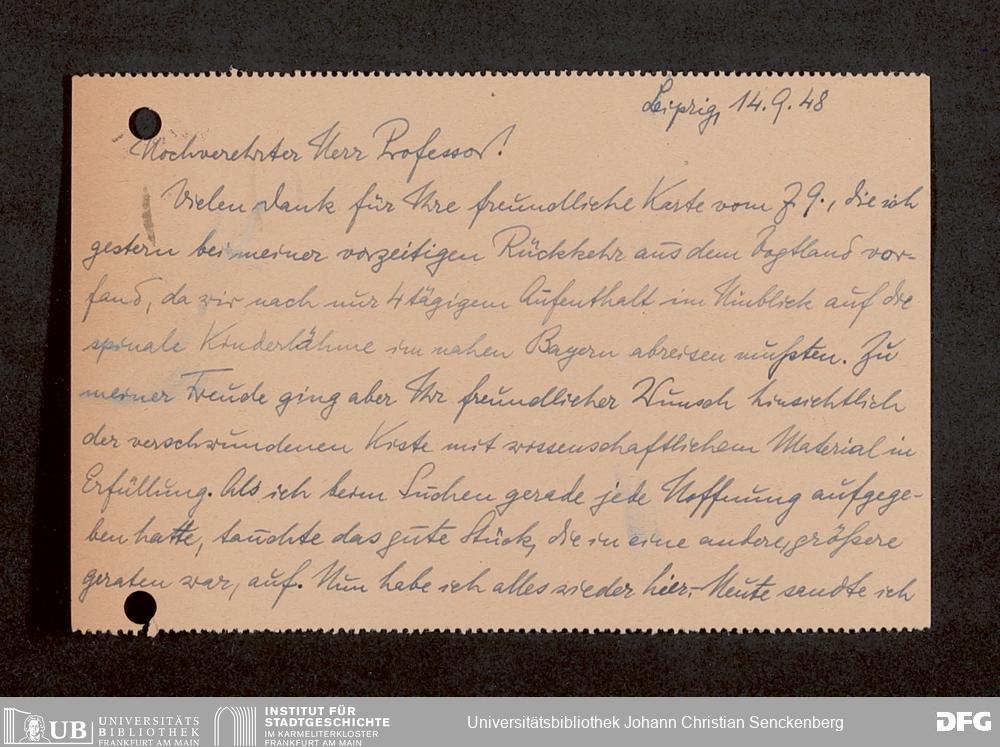 Leipzig, 14.9.48
Hochverehrter Herr Professor!
Vielen Dank für Ihre freundliche Karte vom 7.9., die ich
gestern bei meiner vorzeitigen Rückkehr aus dem Vogtland vor-
fand, da wir nach nur 4tägigem Aufenthalt im Hinblick auf die
spinale Kinderlähme im nahen Bayern abreisen mußten. Zu
meiner Freude ging aber Ihr freundlicher Wunsch hinsichtlich
der verschwundenen Kiste mit wissenschaftlichem Material in
Erfüllung. Als ich beim Suchen gerade jede Hoffnung aufgege-
ben hatte, tauchte das gute Stück, die in eine andere, größere
geraten war, auf. Nun habe ich alles wieder hier. Heute sandte ich
UB UNIVERSITÄTS
BIBLIOTHEK
FRANKFURT AM MAIN
INSTITUT FÜR
STADTGESCHICHTE
IM KARMELITERKLOSTER
FRANKFURT AM MAIN
Universitätsbibliothek Johann Christian Senckenberg
DFG